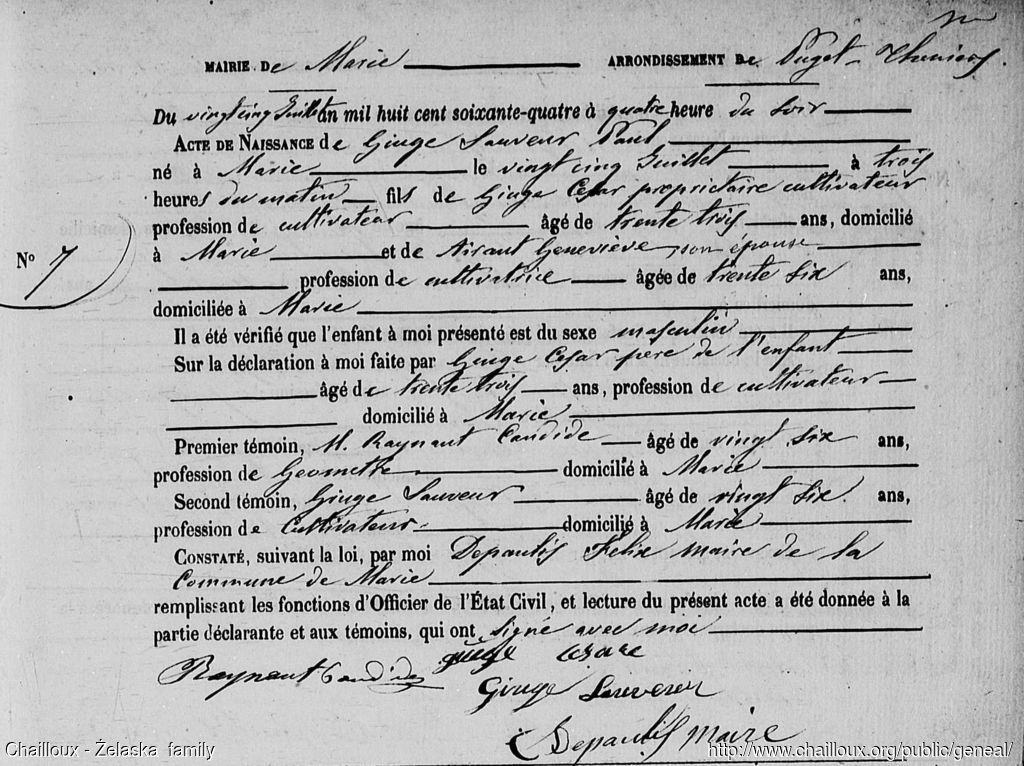 MAIRIE De Marie ARRONDISSEMENT De Puget-Theniers.
Du vingt cinq Juillet an mil huit cent soixante-quatre à quatre heure du soir
ACTE DE NAISSANCE de Giuge Sauveur Paul
né à Marie le vingt cinq Juillet à trois
heures du matin fils de Giuge Cesar propriétaire cultivateur
profession de cultivateur âgé de trente trois ans, domicilié
à Marie et de Airaut Geneviève son épouse
N° 7
profession de cultivatrice âgée de trente six ans,
domiciliée à Marie
Il a été vérifié que l'enfant à moi présenté est du sexe masculin
Sur la déclaration à moi faite par Giuge Cesar père de l'enfant
âgé de trente trois ans, profession de cultivateur
domicilié à Marie
Premier témoin, M. Raynaut Candide âgé de vingt six ans,
profession de Geomettre domicilié à Marie
Second témoin, Giuge Sauveur âgé de vingt six. ans,
profession de Cultivateur domicilié à Marie
CONSTATÉ, suivant la loi, par moi Depaulis Felix maire de la
Commune de Marie
remplissant les fonctions d'Officier de l'État Civil, et lecture du présent acte a été donnée à la
partie déclarante et aux témoins, qui ont signé avec moi
Raynaut Candide giuge Cesare
Giuge Sauveur
Depaulis maire
Chailloux - Żelaska family http://www.chailloux.org/public/geneal/